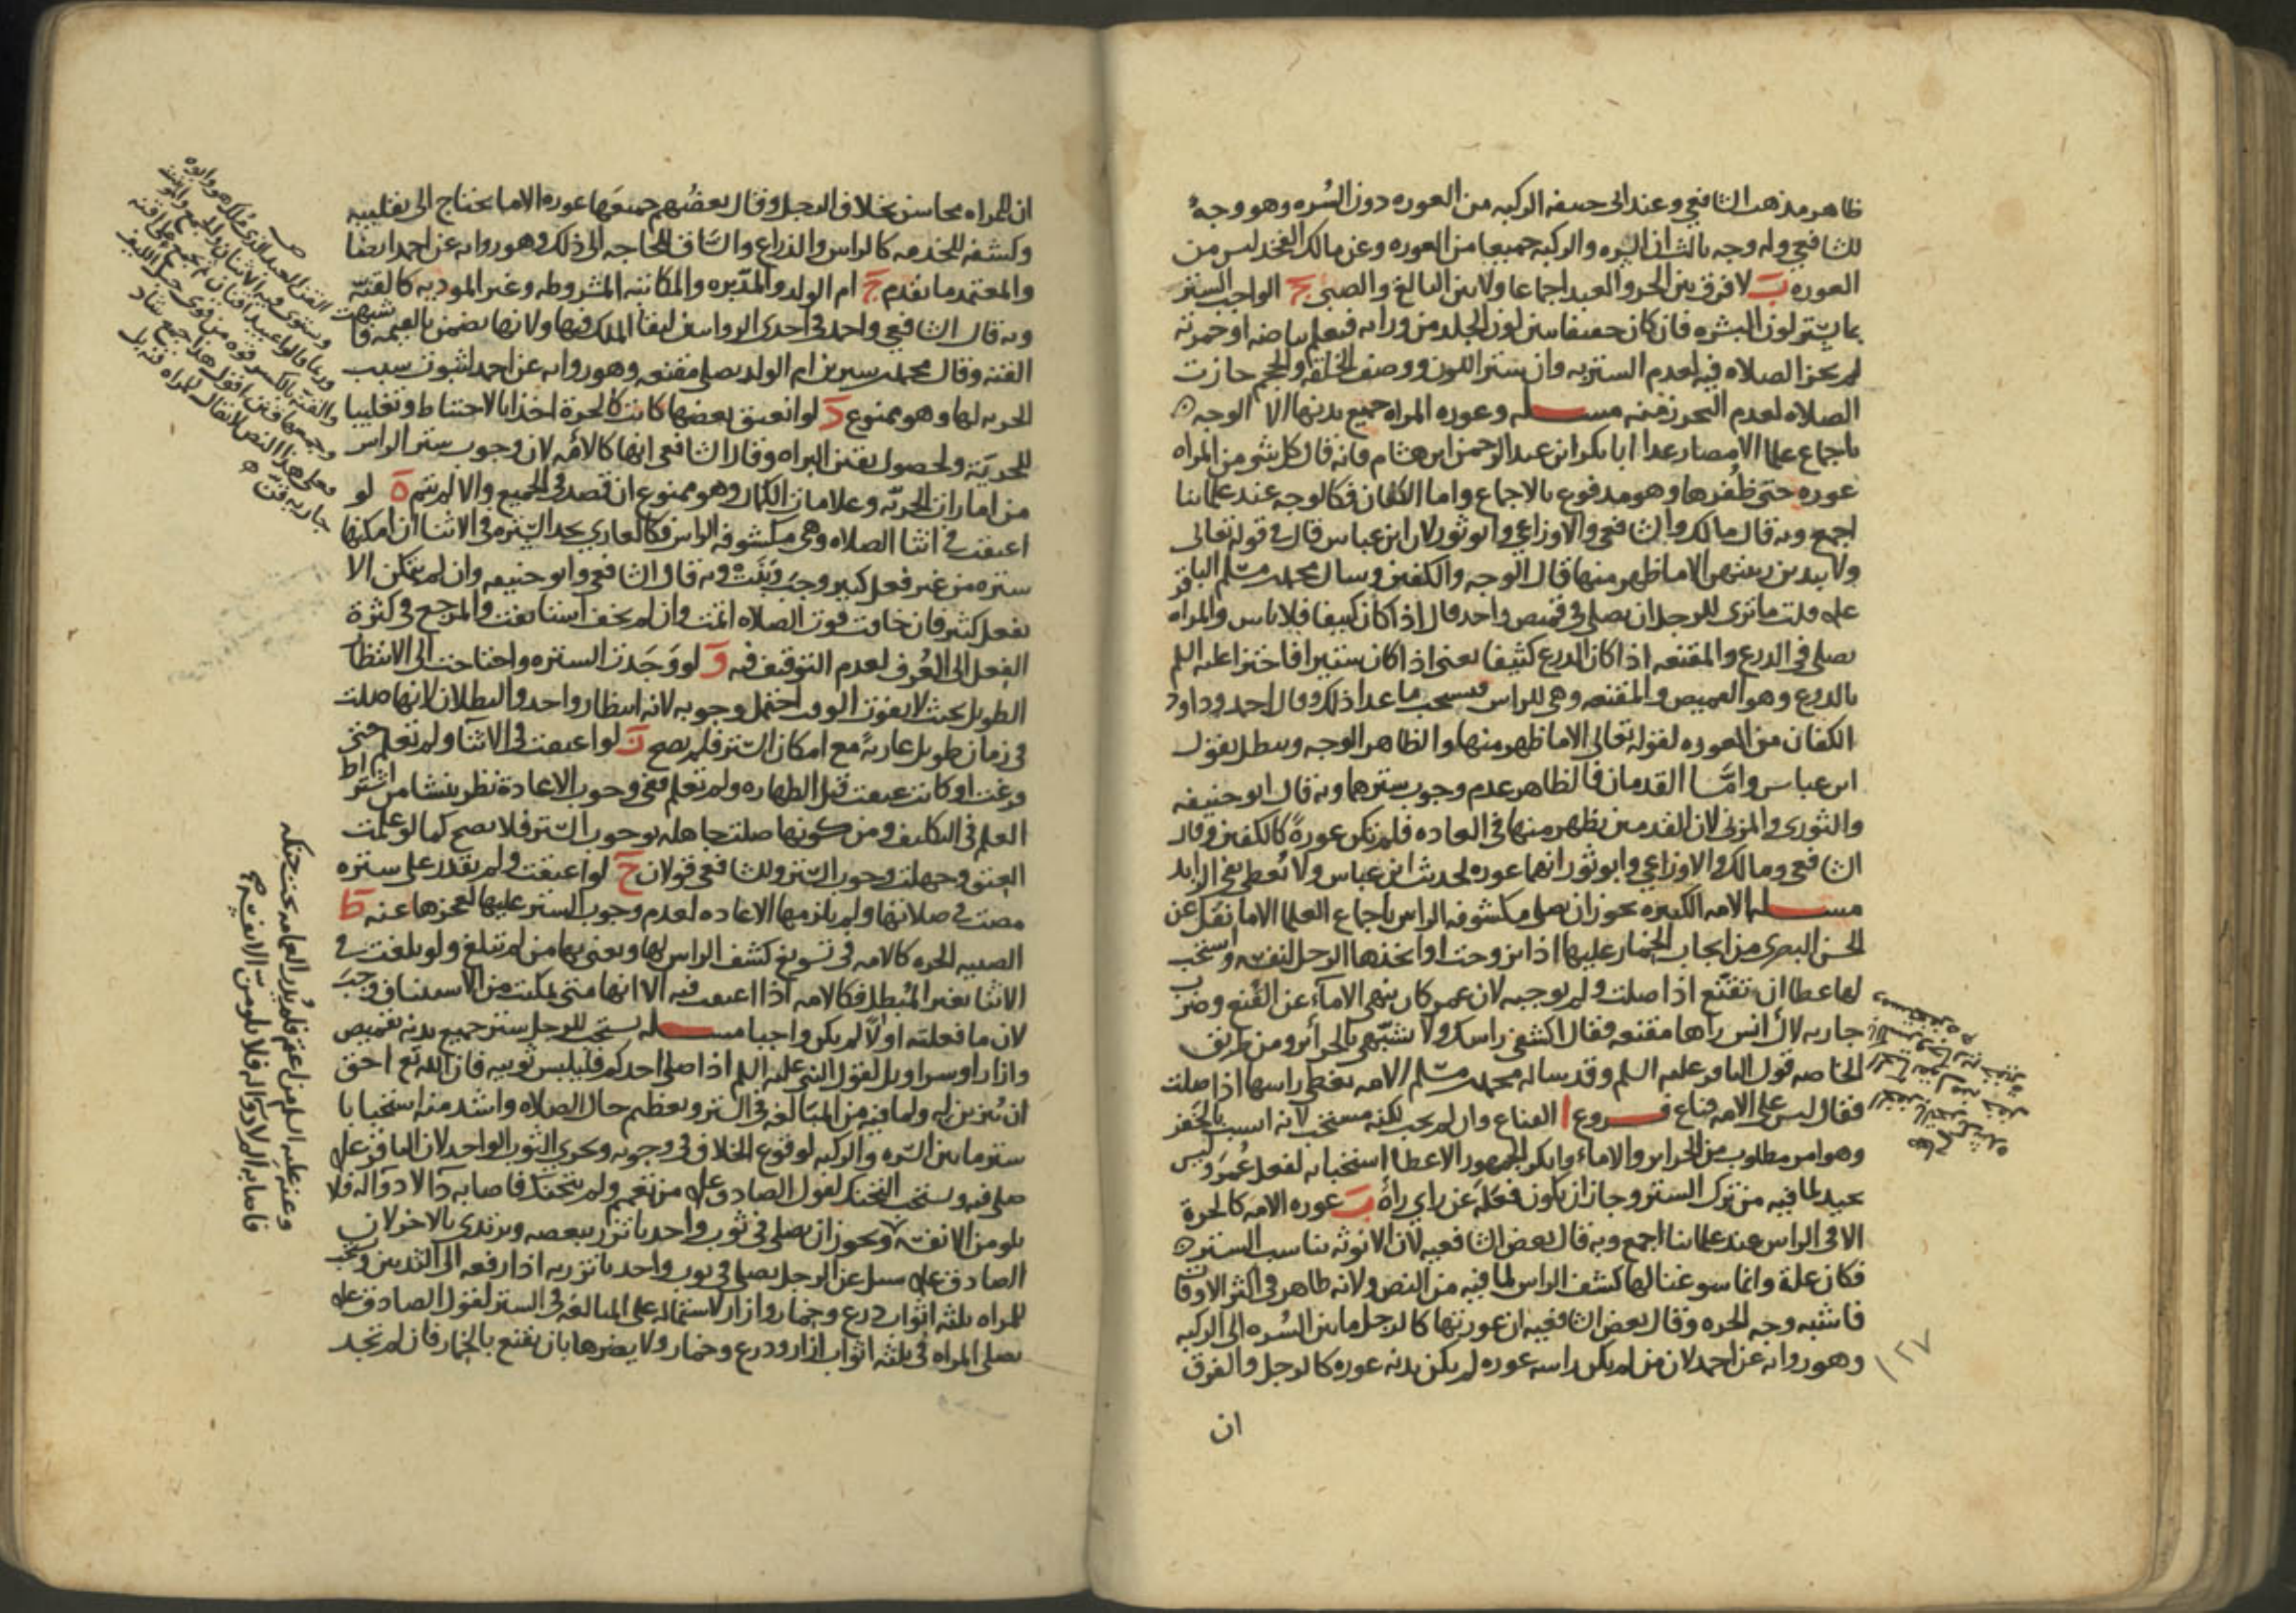 ظاهر مذهب الشافعي وعند ابي حنيفه الركبه من العوره دون السُره وهو وجهٌ
للشافعي وله وجه ثالث ان السره والركبه جميعا من العوره وعن مالك الفخد ليس من
العوره بَ لا فرق بين الحر والعبد اجماعا ولا بين البالغ والصبي جَ الواجب الستر
بما يستر لون البشره فان كان خفيفا يبين لون الجلد من ورائه فيعلم بياضه او حمرته
لم يجز الصلاه فيه لعدم الستر به وان ستر اللون ووصف الخلقه والحجم جازت
الصلاه لعدم التحرز منه مسله وعوره المراه جميع بدنها الا الوجه
باجماع علما الامصار عدا ابا بكر ابن عبد الرحمن ابن هشام فانه قال كل شي من المراه
عوره حتى ظُفرها وهو مدفوع بالاجماع واما الكفان فكالوجه عند علمائنا
اجمع وبه قال مالك والشافعي والاوزاعي وابو ثور لان ابن عباس قال في قوله تعالى
ولا يبدين زينتهن الا ما ظهر منها قال الوجه والكفين وسال محمد بن مسلم الباقر
عليه قلت ما ترى للرجل ان يصلي في قميص واحد قال اذا كان كثيفا فلا باس والمراه
تصلي في الدرع والمقنعه اذا كان الدرع كثيفا يعني اذا كان ستيرا فاجتزا عليه السلم
بالدرع وهو القميص والمقنعه وهي للراس فيستحب ما عدا ذلك وقال احمد وداود
الكفان من العوره لقوله تعالى الا ما ظهر منها والظاهر الوجه ويبطل بقول
ابن عباس وامَّا القدمان فالظاهر عدم وجوب سترهما وبه قال ابو حنيفه
والثوري والمزني لان القدمين يظهر منها في العاده فلم يكن عورةً كالكفين وقال
الشافعي ومالك والاوزاعي وابو ثور انهما عوره لحديث ابن عباس ولا يُعطي نفي الزايد
مسله الامه الكبيره يجوز ان تصلي مكشوفه الراس باجماع العلما الا ما نقل عن
الحسن البصري من ايجاب الخمار عليها اذا تزوجت او اتخذها الرجل لنفسه واستحب
لها عطا ان تقنّع اذا صلت ولم يوجبه لان عمر كان ينهى الامآء عن التقنع وضرب
جاريه لال انس راها مقنعه فقال اكشفي راسك ولا تشبّهي بالحرائر ومن طريق
الخاصه قول الباقر عليه السلم وقد ساله محمد بن مسلم الامه تغطي راسها اذا صلت
فقال ليس على الامه قناع فروع ا القناع وان لم يجب لكنه مستحب لانه انسب بالخفر
وهو امر مطلوب من الحراير والاماء وانكر الجمهور الا عطا استحبابه لفعل عُمَر وليس
بجيد لما فيه من ترك الستر وجاز ان يكون فعله عن راي راهُ بَ عوره الامه كالحرة
الا في الراس عند علمائنا اجمع وبه قال بعض الشافعيه لان الانوثه تناسب الستر
فكان علة وانما سوغنا لها كشف الراس لما فيه من النص ولانه ظاهر في اكثر الاوقات
فاشبه وجه الحره وقال بعض الشافعيه ان عورتها كالرجل ما بين السُره الى الركبه
وهو روايه عن احمد لان من لم يكن راسه عوره لم يكن بدنه عوره كالرجل والفرق
ان
١٢٧
ان للمراه محاسن بخلاف الرجل وقال بعضُهم جميعها عوره الا ما يحتاج الى تقليبه
وكشفه للخدمه كالراس والذراع والسّاق للحاجه الى ذلك وهو روايه عن احمد ايضا
والمعتمد ما تقدم جَ ام الولد والمدّبره والمكاتبه المشروطه وغير الموديه كالقنّه
وبه قال الشافعي واحمد في احدى الروايتين لبقا الملك فيها ولانها تضمن بالقيمه فاشبهت
القنه وقال محمد بن سيرين ام الولد تصلي مقنعه وهو روايه عن احمد لثبوت سبب
الحريه لها وهو ممنوع دَ لو انعتق بعضها كانت كالحرة اخذا بالاحتياط وتغليبا
للحريّة ولحصول يقين البراه وقال الشافعي انها كالامه لان وجوب ستر الراس
من امارات الحريّه وعلامات الكمال وهو ممنوع ان قصد في الجميع والا لم يتم هَ لو
اعتقت في اثنا الصلاه وهي مكشوفه الراس فكالعاري يجد السترة في الاثنا ان امكنها
ستره من غير فعل كثير وجب وبَنَت وبه قال الشافعي وابو حنيفه وان لم يتمكن الا
بفعل كثير فان خافت فوت الصلاه اتمت وان لم تخف استانفت والمرجع في كثرة
الفعل الى العُرف لعدم التوقيف فيه وَ لو وَجَدت الستره واحتاجت الى الانتظار
الطويل بحيث لا يفوت الوقت احتمل وجوبه لانه انتظار واحد والبطلان لانها صلت
في زمان طويل عاريةً مع امكان الستر فلم يصح زَ لو اعتقت في الاثنا ولم تعلم حتى
فرغت او كانت عتقت قبل الطهاره ولم تعلم ففي وجوب الاعادة نظر ينشا من اشتراط
العلم في التكليف ومن كونها صلت جاهله بوجوب الستر فلا يصح كما لو علمت
العتق وجهلت وجوب الستر وللشافعي قولان حَ لو اعتقت ولم يقدر على ستره
مضت في صلاتها ولم يلزمها الاعاده لعدم وجوب الستر عليها لعجزها عنه طَ
الصبيه الحره كالامه في تسويغ كشف الراس لها ويعني بها من لم تبلغ ولو بلغت في
الاثنا بغير المُبطل فكالامه اذا اعتقت فيه الا انها متى تمكنت من الاستيناف وجبَ
لان ما فعلته اولًا لم يكن واجبا مسله يستحب للرجل ستر جميع بدنه بقميص
وازار او سراويل لقول النبي عليه السلم اذا صلى احدكم فليلبس ثوبيه فان الله تع احق
ان تُزين له ولما فيه من المبَالغه في الستر وتعظيم حال الصلاه واشد منه استحبابا
ستر ما بين السّره والركبه لوقوع الخلاف في وجوبه ويجزي الثوب الواحد لان الباقر عليه
صلى فيه ويستحب التحنك لقول الصادق عليه من تعمم ولم يتحنك فاصابه دآ لا دوآ له فلا
يلومن الا نفسه ويجوز ان يصلي في ثوب واحد ياتزر ببعضه ويرتدي بالاخر لان
الصادق عليه سيل عن الرجل يصلي في ثوب واحد ياتزر به اذا رفعه الى الثديين ويستحب
للمراه ثلثه اثواب درع وخمار وازار لاشتماله على المبالغه في الستر لقول الصادق عليه
تصلي المراه في ثلثه اثواب ازار ودرع وخمار ولا يضرها بان تقنع بالخمار فان لم تجد
القن العبد الذي مُلك هو وابوه
ويستوي فيه الاثنان والجمع والمونث
وربما قالوا عبيد اقنان ثم يجمع على اقنه
فعلى هذا النص لا يقال للمراه قنه بل
جاريه قنّ
وعنه عليه السلم من اعتم فلم يُدر العمامه تحت حنكه
فاصابه الم لا دوآ له فلا يلومن الا نفسه